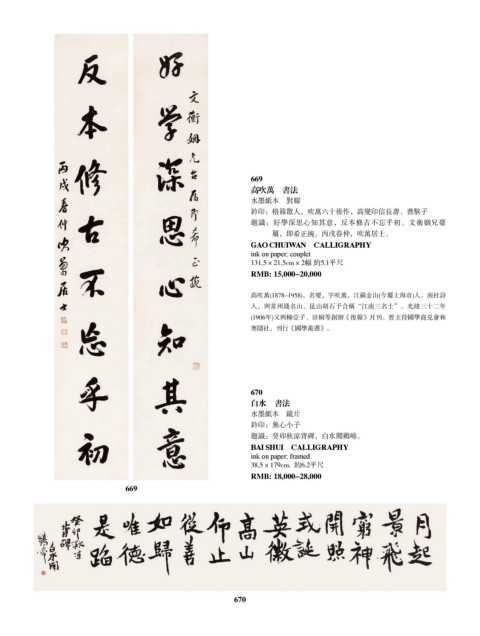 好學深思心知其意
文衡姻兄台屬即希正捥
反本修古不忘乎初
丙戌春仲吹萬居士
669
669
高吹萬　書法
水墨紙本　對聯
鈐印：格簃散人、吹萬六十後作、高燮印信長壽、書駮子
題識：好學深思心知其意，反本修古不忘乎初。文衡姻兄臺
屬，即希正捥。丙戌春仲，吹萬居士。
GAO CHUIWAN　CALLIGRAPHY
ink on paper; couplet
131.5 × 21.5cm × 2幅 約5.1平尺
RMB: 15,000~20,000
高吹萬(1878~1958)，名燮，字吹萬，江蘇金山(今屬上海市)人。南社詩
人，與常州錢名山、昆山胡石予合稱“江南三名士”。光緒三十二年
(1906年)又與柳亞子、田桐等創辦《復報》月刊。曾主持國學商兌會和
寒隱社，刊行《國學叢選》。
670
白水　書法
水墨紙本　鏡片
鈐印：無心小子
題識：癸卯秋涼背碑，白水聞鷄啼。
BAI SHUI　CALLIGRAPHY
ink on paper; framed
38.5 × 179cm.  約6.2平尺
RMB: 18,000~28,000
月起
景飛
窮神
開照
式誕
英徽
高山
仰止
從善
如歸
唯德
是蹈
癸卯秋涼
背碑
白水聞
鷄啼
670